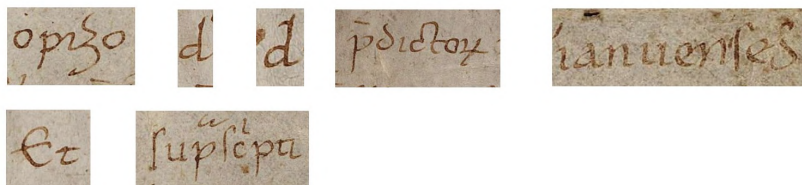 opizo d d p̄dictoꝝ ianuenses
Et supᷓsc̍pti